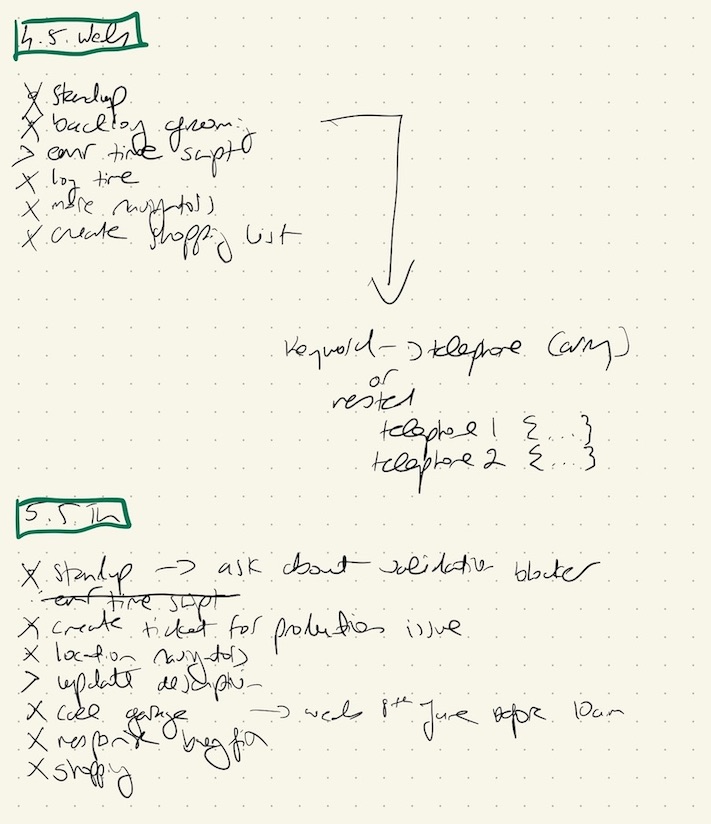 4.5. Weds
x standup
x backlog grooming
> emr time script
x log time
x more navigator(s)
x create shopping list
keyword -> telephone (array)
or
nested
telephone 1 {...}
telephone 2 {...}
5.5. Th
x standup -> ask about validation blocker
emr time script
x create ticket for production issue
x location navigator(s)
> update description
x call garage -> weds 8th June before 10am
x response bug fix
x shopping